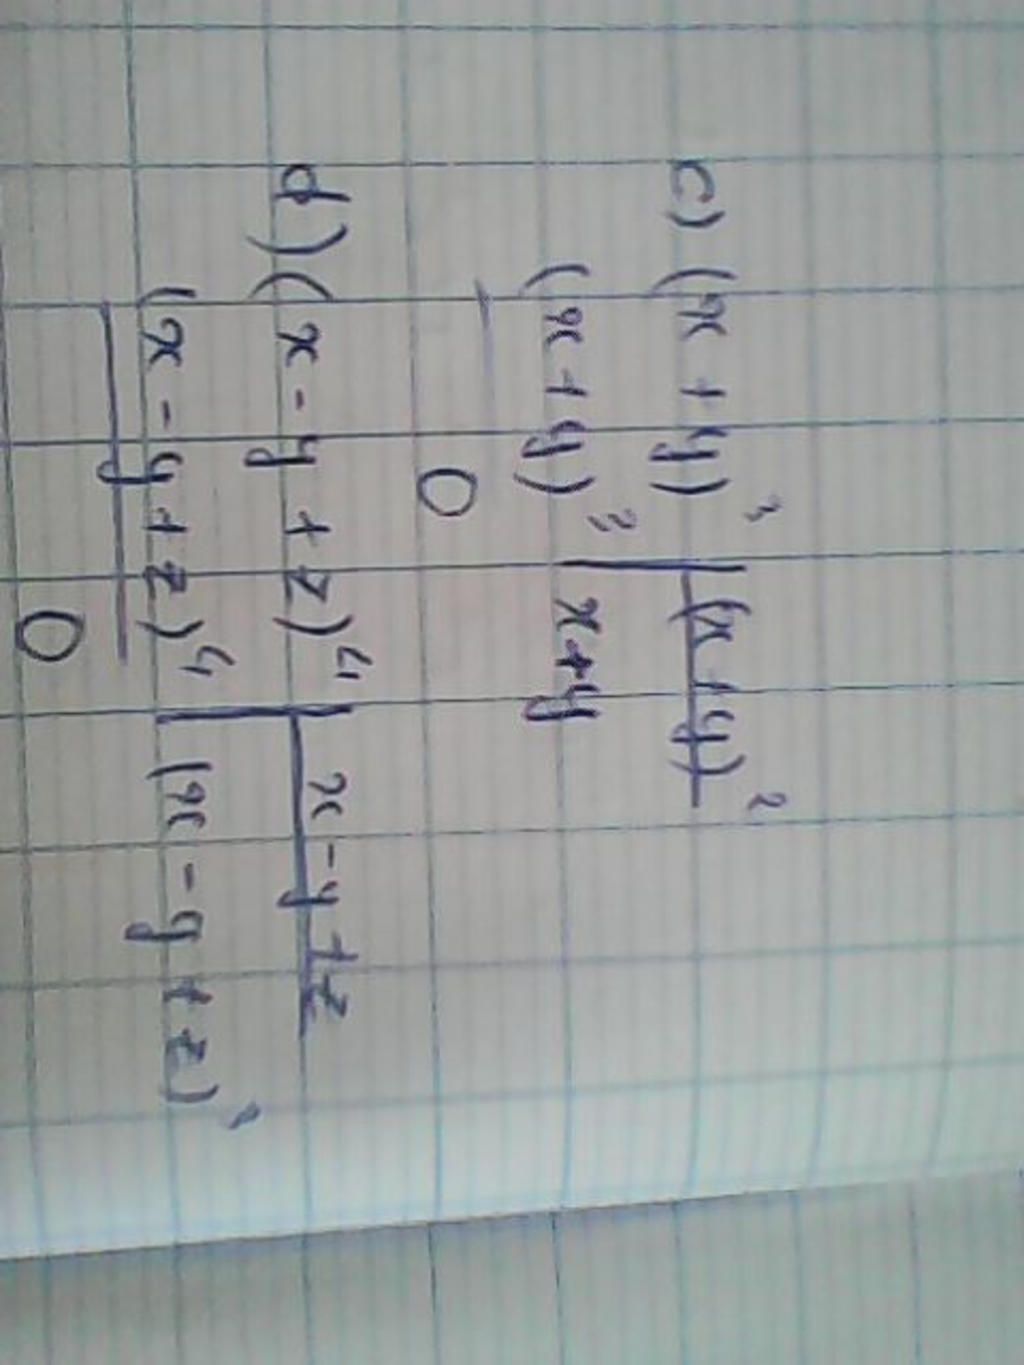 c) (x + y)³ | (x + y)²
(x + y)² | x + y
0
d) (x - y + z)⁴ | x - y + z
(x - y + z)⁴ | (x - y + z)³
0